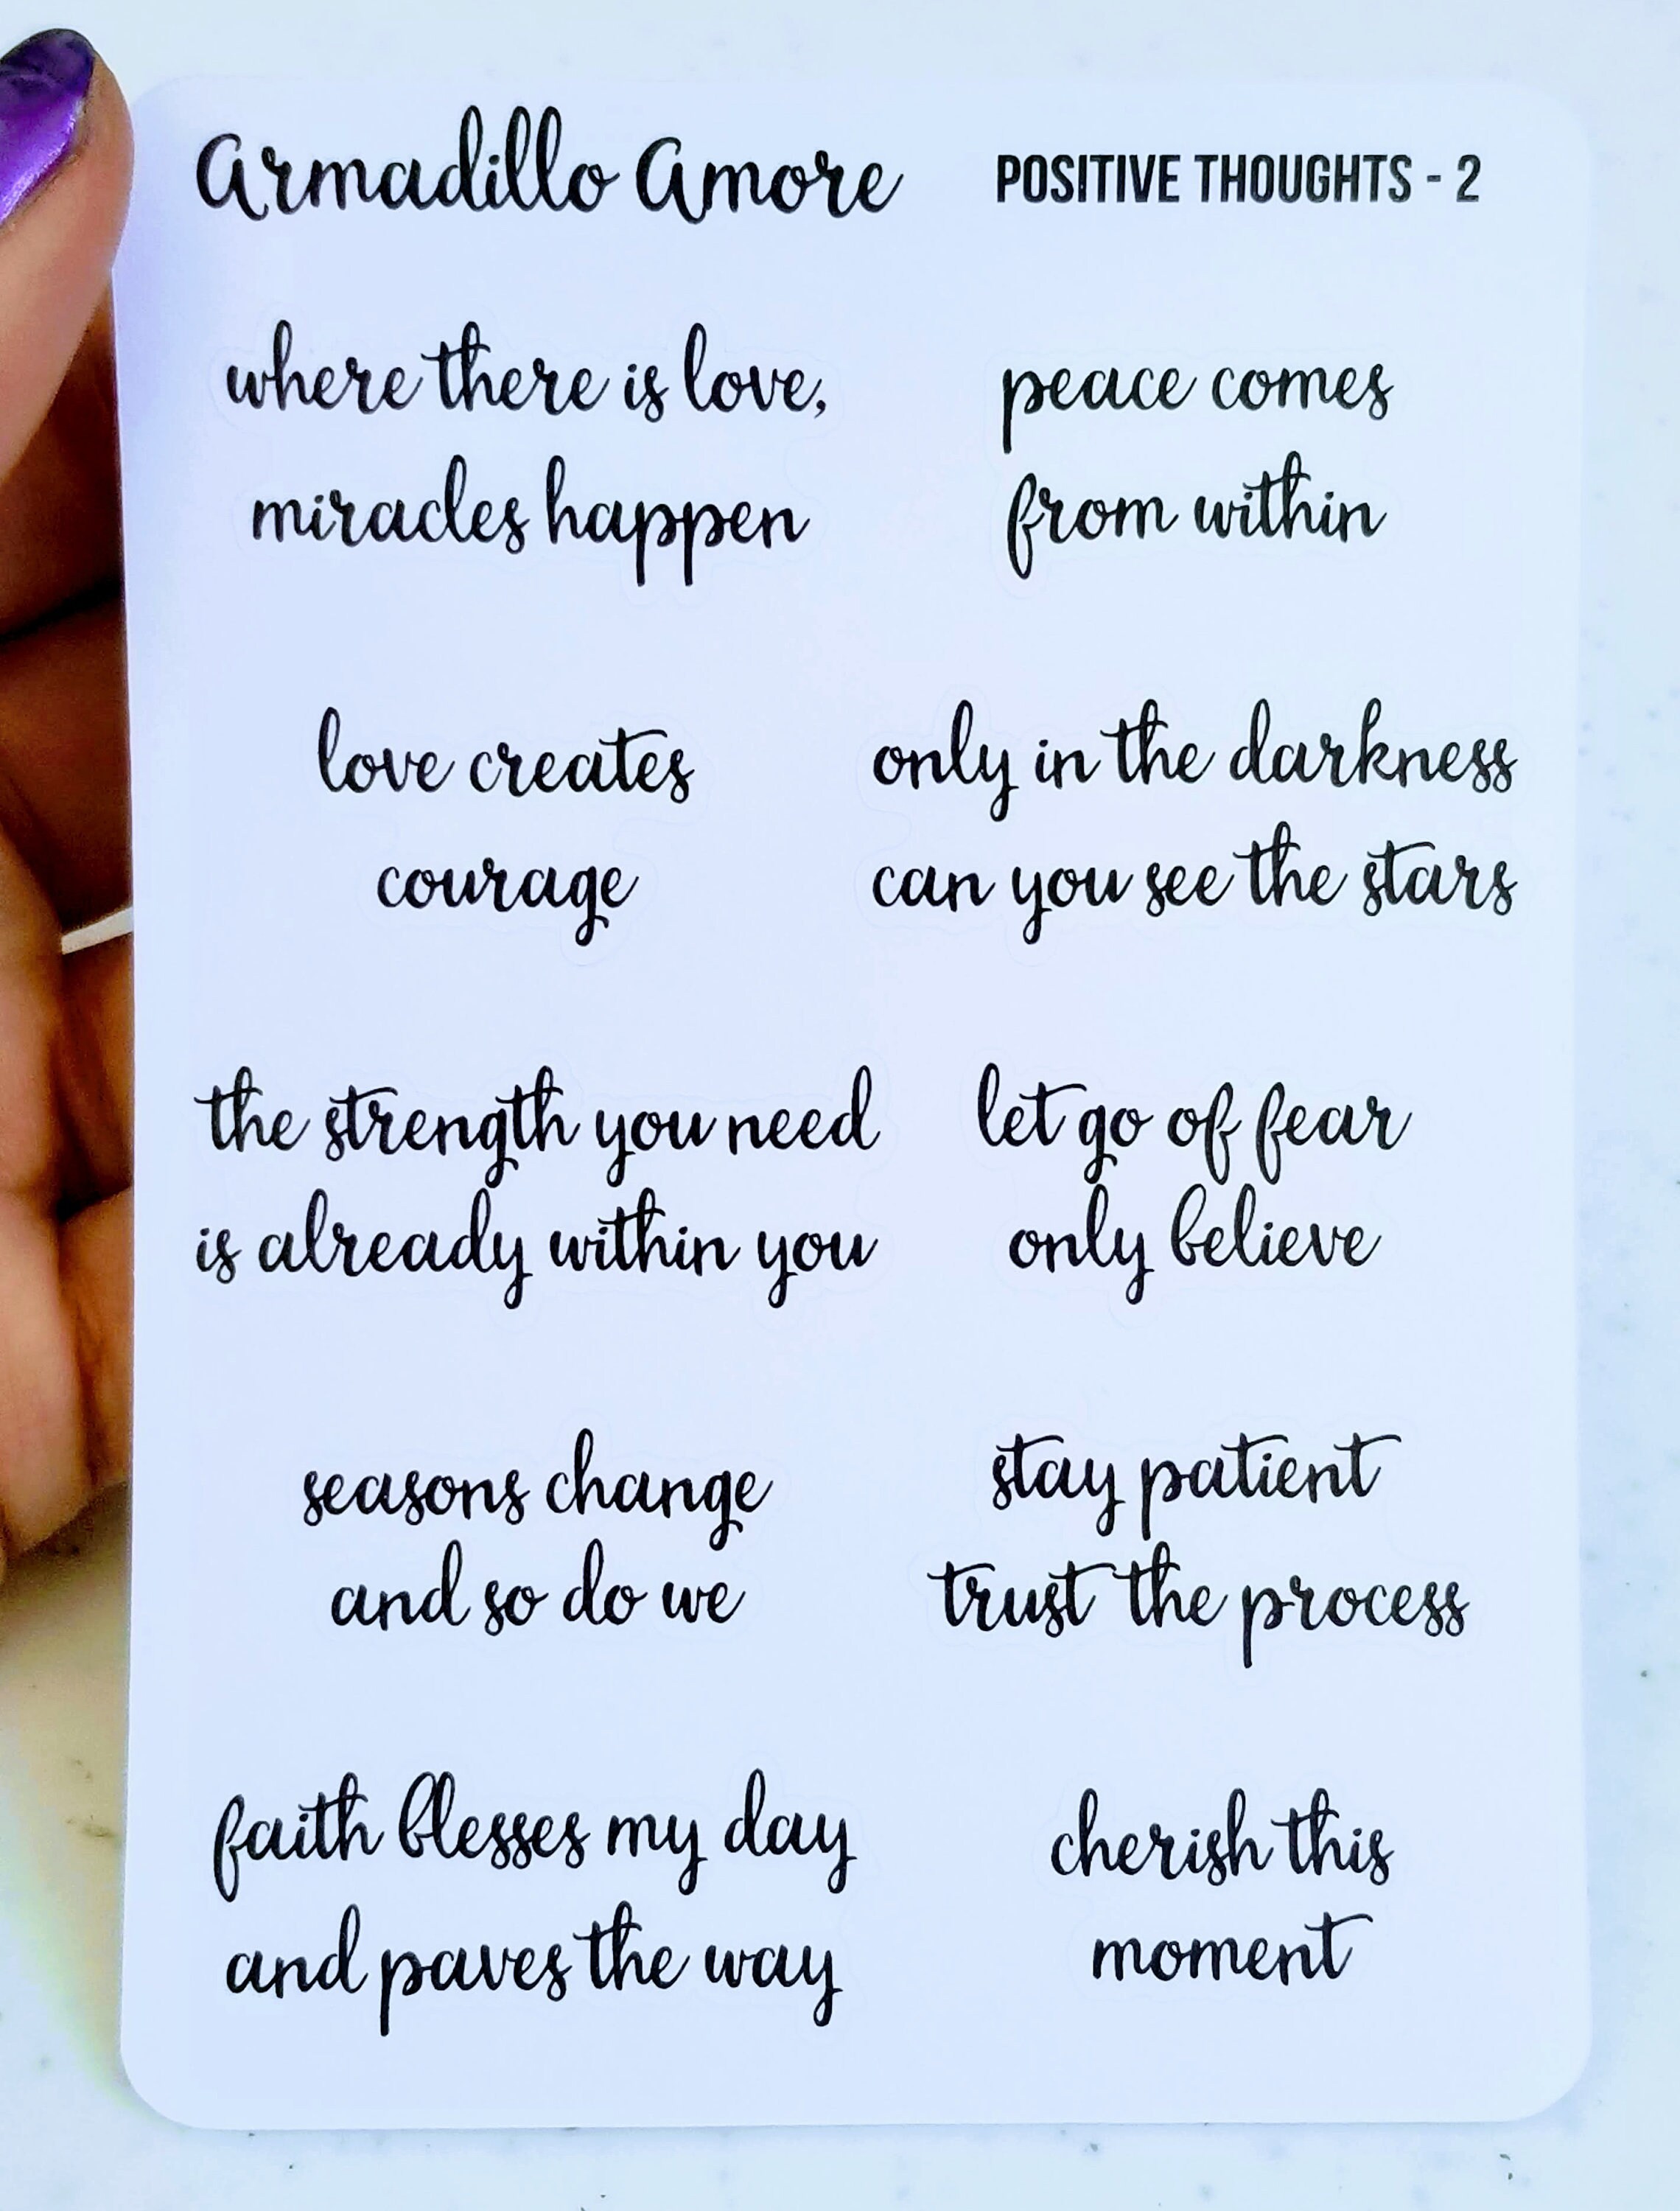 Armadillo Amore POSITIVE THOUGHTS - 2
where there is love,
miracles happen
peace comes
from within
love creates
courage
only in the darkness
can you see the stars
the strength you need
is already within you
let go of fear
only believe
seasons change
and so do we
stay patient
trust the process
faith blesses my day
and paves the way
cherish this
moment